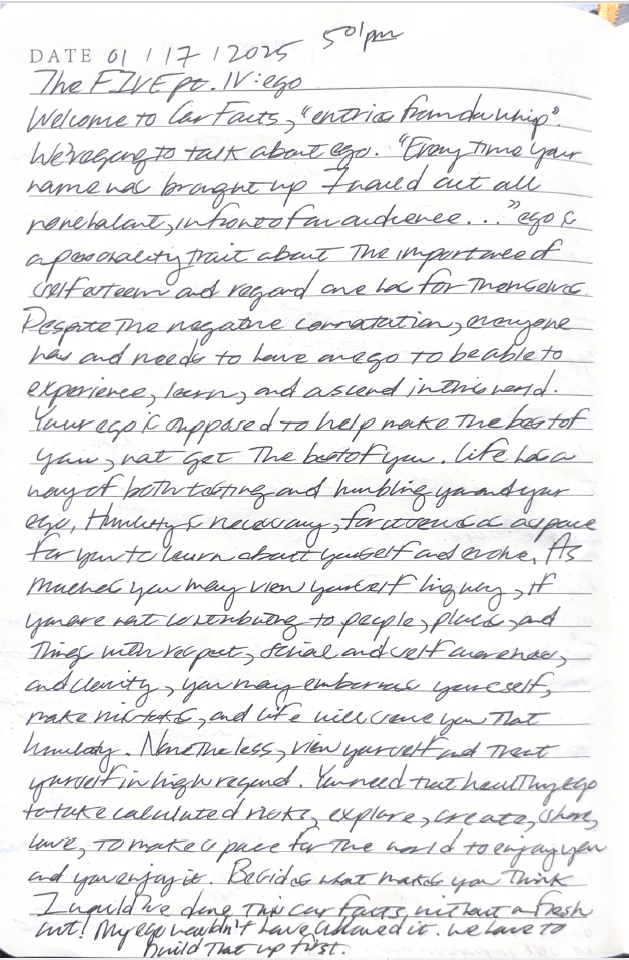 501pm
DATE 01 / 17 / 2025
The FIVE pt. IV: ego
Welcome to Car Facts, "entries from da whip".
We're going to talk about ego. "Every time your
name was brought up I would act all
nonchalant, in front of an audience..." ego is
a personality trait about the importance of
self esteem and regard one has for themselves.
Despite the negative connotation, everyone
has and needs to have an ego to be able to
experience, learn, and ascend in this world.
Your ego is supposed to help make the best of
you, not get the best of you. Life has a
way of both testing and humbling you and your
ego, Humility is necessary, for it serves as a space
for you to learn about yourself and evolve. As
much as you may view yourself highly, if
you are not contributing to people, places, and
things with respect, social and self awareness,
and clarity, you may embarrass yourself,
make mistakes, and life will serve you that
humility. Nonetheless, view yourself and treat
yourself in high regard. You need that healthy ego
to take calculated risks, explore, create, share,
love, to make space for the world to enjoy you
and you enjoy it. Besides what makes you think
I would've done this car facts, without a fresh
cut! My ego wouldn't have allowed it. we have to
build that up first.